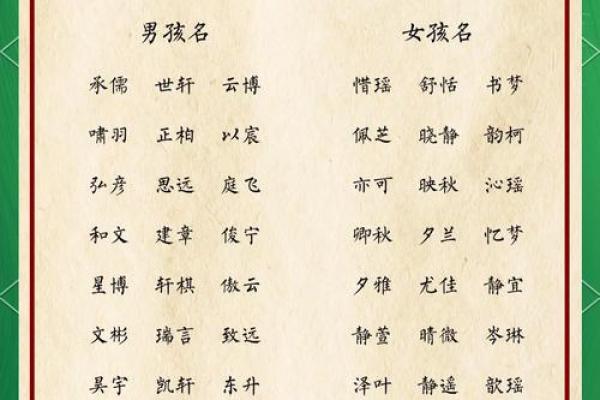 男孩名 女孩名
承儒 世轩 云博 惜瑶 舒恬 书梦
啸羽 正柏 以宸 佩芝 晓静 韵柯
弘彦 思远 庭飞 亦可 映秋 沁瑶
和文 建章 俊宁 卿秋 夕兰 忆梦
星博 轩棋 傲云 夕雅 尤佳 静宜
文彬 瑞言 致远 静萱 晴微 岑琳
昊宇 凯轩 东升 泽叶 静遥 歆瑶